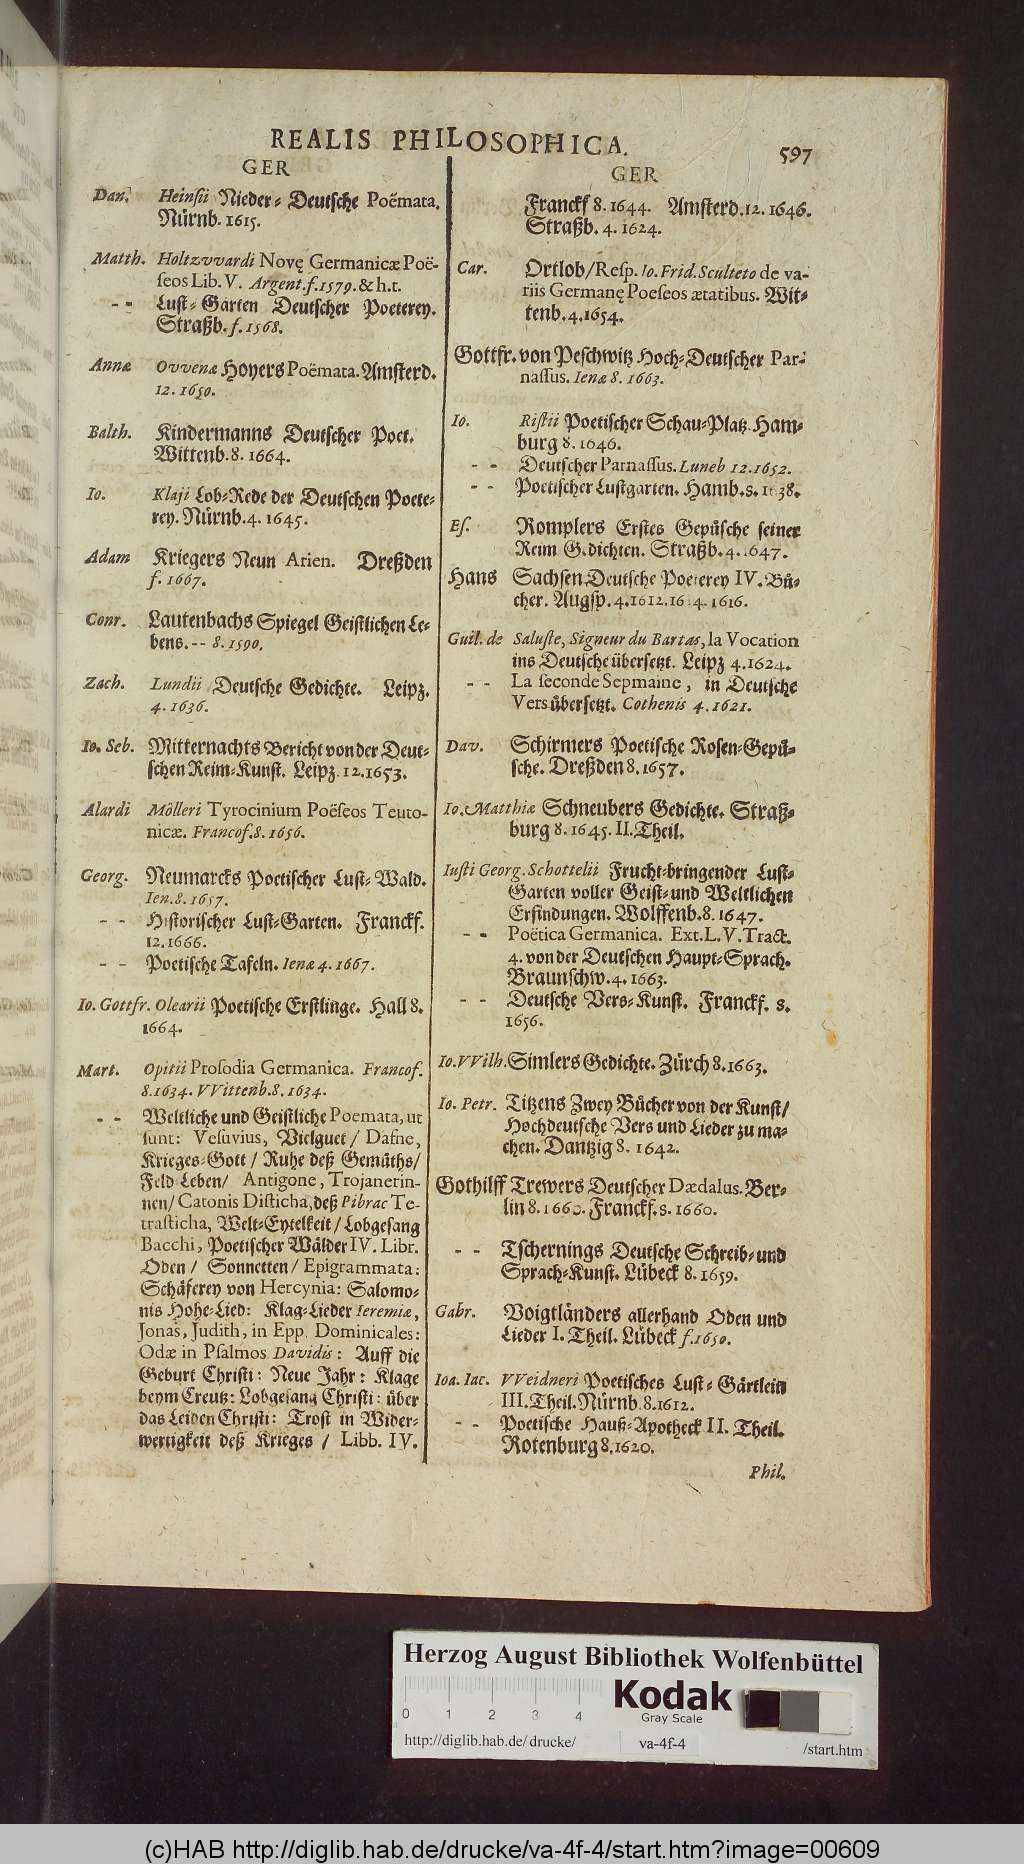 REALIS PHILOSOPHICA.
597
GER
Dan. Heinſii Nieder-Deutſche Poëmata.
Nürnb. 1615.
Matth. Holtzvvardi Novę Germanicæ Poë-
ſeos Lib. V. Argent. f. 1579. & h.t.
-- Luſt-Garten Deutſcher Poeterey.
Straßb. f. 1568.
Annæ Ovvenæ Hoyers Poëmata. Amſterd.
12. 1650.
Balth. Kindermanns Deutſcher Poet.
Wittenb. 8. 1664.
Io. Klaji Lob-Rede der Deutſchen Poete-
rey. Nürnb. 4. 1645.
Adam Kriegers Neun Arien. Dreßden
f. 1667.
Conr. Lautenbachs Spiegel Geiſtlichen Le-
bens. -- 8. 1590.
Zach. Lundii Deutſche Gedichte. Leipz.
4. 1636.
Io. Seb. Mitternachts Bericht von der Deut-
ſchen Reim-Kunſt. Leipz. 12. 1653.
Alardi Mölleri Tyrocinium Poëſeos Teuto-
nicæ. Francof. 8. 1656.
Georg. Neumarcks Poetiſcher Luſt-Wald.
Ien. 8. 1657.
-- Hiſtoriſcher Luſt-Garten. Franckf.
12. 1666.
-- Poetiſche Tafeln. Ienæ 4. 1667.
Io. Gottfr. Olearii Poetiſche Erſtlinge. Hall 8.
1664.
Mart. Opitii Proſodia Germanica. Francof.
8. 1634. VVittenb. 8. 1634.
-- Weltliche und Geiſtliche Poemata, ut
ſunt: Veſuvius, Vielguet / Dafne,
Krieges-Gott / Ruhe deß Gemüths /
Feld-Leben / Antigone, Trojanerin-
nen / Catonis Diſticha, deß Pibrac Te-
traſticha, Welt-Eytelkeit / Lobgeſang
Bacchi, Poetiſcher Wälder IV. Libr.
Oden / Sonnetten / Epigrammata:
Schäferey von Hercynia: Salomo-
nis Hohe-Lied: Klag-Lieder Ieremiæ,
Jonas, Judith, in Epp. Dominicales:
Odæ in Pſalmos Davidis: Auff die
Geburt Chriſti: Neue Jahr: Klage
beym Creutz: Lobgeſang Chriſti: über
das Leiden Chriſti: Troſt in Wider-
wertigkeit deß Krieges / Libb. IV.
GER
Franckf 8. 1644. Amſterd. 12. 1646.
Straßb. 4. 1624.
Car. Ortlob / Reſp. Io. Frid. Sculteto de va-
riis Germanę Poeſeos ætatibus. Wit-
tenb. 4. 1654.
Gottfr. von Peſchwitz Hoch-Deutſcher Par-
naſſus. Ienæ 8. 1663.
Io. Riſtii Poetiſcher Schau-Platz. Ham-
burg 8. 1646.
-- Deutſcher Parnaſſus. Luneb 12. 1652.
-- Poetiſcher Luſtgarten. Hamb. 8.
Eſ. Romplers Erſtes Gepüſche ſeiner
Reim Gedichten. Straßb. 4. 1647.
Hans Sachſen Deutſche Poeterey IV. Bü-
cher. Augſp. 4. 1612. 1614. 1616.
Guil. de Saluſte, Signeur du Bartas, la Vocation
ins Deutſche überſetzt. Leipz 4. 1624.
-- La ſeconde Sepmaine, in Deutſche
Vers überſetzt. Cothenis 4. 1621.
Dav. Schirmers Poetiſche Roſen-Gepü-
ſche. Dreßden 8. 1657.
Io. Matthiæ Schneubers Gedichte. Straß-
burg 8. 1645. II. Theil.
Iuſti Georg. Schottelii Frucht-bringender Luſt-
Garten voller Geiſt- und Weltlichen
Erfindungen. Wolffenb. 8. 1647.
-- Poëtica Germanica. Ext. L. V. Tract.
4. von der Deutſchen Haupt-Sprach.
Braunſchw. 4. 1663.
-- Deutſche Vers-Kunſt. Franckf. 8.
1656.
Io. VVilh. Simlers Gedichte. Zürch 8. 1663.
Io. Petr. Titzens Zwey Bücher von der Kunſt /
Hochdeutſche Vers und Lieder zu ma-
chen. Dantzig 8. 1642.
Gothilff Trewers Deutſcher Dædalus. Ber-
lin 8. 1660. Franckf. 8. 1660.
-- Tſchernings Deutſche Schreib- und
Sprach-Kunſt. Lübeck 8. 1659.
Gabr. Voigtländers allerhand Oden und
Lieder I. Theil. Lübeck f. 1650.
Ioa. Iac. VVeidneri Poetiſches Luſt-Gärtlein
III. Theil. Nürnb. 8. 1612.
-- Poetiſche Hauß-Apotheck II. Theil.
Rotenburg 8. 1620.
Phil.
Herzog August Bibliothek Wolfenbüttel
0 1 2 3 4
Kodak
Gray Scale
http://diglib.hab.de/drucke/ va-4f-4 /start.htm
(c)HAB http://diglib.hab.de/drucke/va-4f-4/start.htm?image=00609